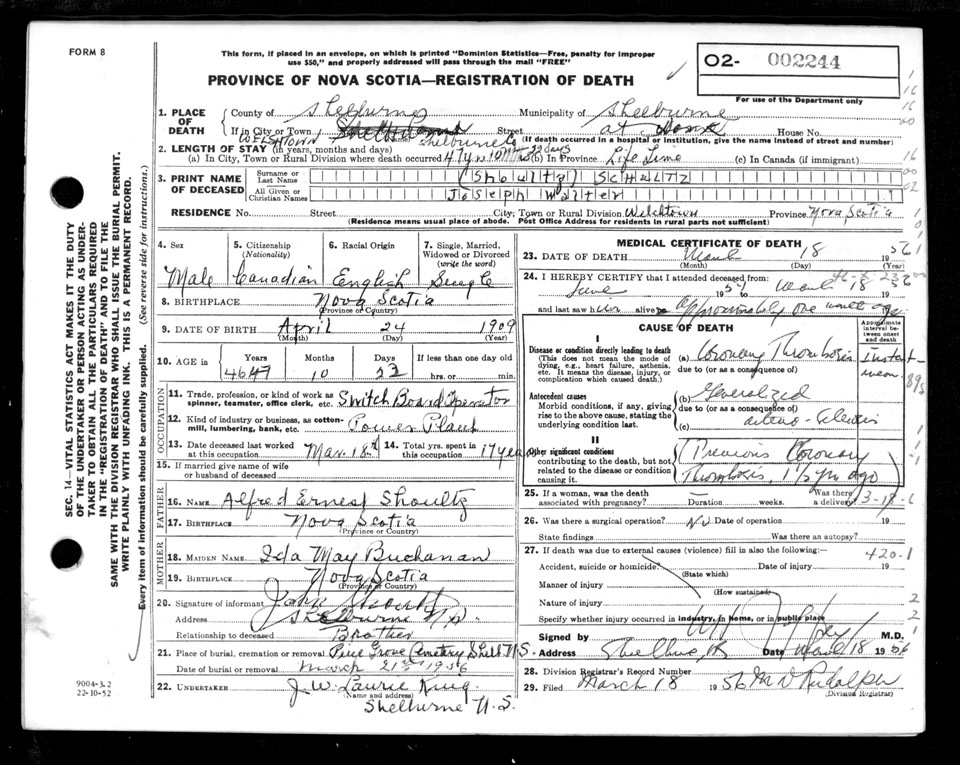 FORM 8
This form, if placed in an envelope, on which is printed "Dominion Statistics—Free, penalty for improper
use $50," and properly addressed will pass through the mail "FREE"
PROVINCE OF NOVA SCOTIA—REGISTRATION OF DEATH
O2- 002244
For use of the Department only
1. PLACE OF DEATH
County of Shelburne Municipality of Shelburne
If in City or Town Street at Home House No.
WELSHTOWN Shelburne Co (If death occurred in a hospital or institution, give the name instead of street and number)
2. LENGTH OF STAY (in years, months and days)
(a) In City, Town or Rural Division where death occurred 47 yrs 10 mths 22 days (b) In Province Life Time (c) In Canada (if immigrant)
3. PRINT NAME OF DECEASED
Surname or Last Name (Shoultz) SCHULTZ
All Given or Christian Names Joseph Walter
RESIDENCE No. Street City, Town or Rural Division Welshtown Province Nova Scotia
(Residence means usual place of abode. Post Office Address for residents in rural parts not sufficient)
4. Sex Male
5. Citizenship (Nationality) Canadian
6. Racial Origin English
7. Single, Married, Widowed or Divorced (write the word) Single
8. BIRTHPLACE Nova Scotia
(Province or Country)
9. DATE OF BIRTH April 24 1909
(Month) (Day) (Year)
10. AGE in Years Months Days If less than one day old
46 47 10 23 hrs. or min.
OCCUPATION
11. Trade, profession, or kind of work as spinner, teamster, office clerk, etc. Switch Board Operator
12. Kind of industry or business, as cotton-mill, lumbering, bank, etc. Power Plant
13. Date deceased last worked at this occupation Mar. 18th
14. Total yrs. spent in this occupation 17 years
15. If married give name of wife or husband of deceased
FATHER
16. NAME Alfred Ernest Shoultz
17. BIRTHPLACE Nova Scotia
(Province or Country)
MOTHER
18. MAIDEN NAME Ida May Buchanan
19. BIRTHPLACE Nova Scotia
(Province or Country)
20. Signature of informant John Shoultz
Address Shelburne N.S.
Relationship to deceased Brother
21. Place of burial, cremation or removal Pine Grove Cemetery Shell N.S.
Date of burial or removal March 21st 1956
22. UNDERTAKER J. W. Laurie King
(Name and address)
Shelburne N.S.
MEDICAL CERTIFICATE OF DEATH
23. DATE OF DEATH March 18 1956
(Month) (Day) (Year)
24. I HEREBY CERTIFY that I attended deceased from:
June 1954 to March 18 1956
and last saw him alive approximately one month ago
CAUSE OF DEATH
Approximate interval between onset and death
I
Disease or condition directly leading to death (a) Coronary Thrombosis
(This does not mean the mode of dying, e.g., heart failure, asthenia, etc. It means the disease, injury, or complication which caused death.)
due to (or as a consequence of)
Antecedent causes (b) Generalized
Morbid conditions, if any, giving rise to the above cause, stating the underlying condition last.
due to (or as a consequence of)
(c) arterio-sclerosis
II
Other significant conditions
contributing to the death, but not related to the disease or condition causing it.
Previous Coronary
Thrombosis, 1½ yrs ago
25. If a woman, was the death associated with pregnancy? Duration weeks. Was there a delivery?
3-18-6
26. Was there a surgical operation? No Date of operation 19
State findings Was there an autopsy?
27. If death was due to external causes (violence) fill in also the following:
420.1
Accident, suicide or homicide? Date of injury 19
(State which)
Manner of injury
(How sustained)
Nature of injury
Specify whether injury occurred in industry, in home, or in public place
Signed by M.D.
Address Shelburne, NS Date March 18 1956
28. Division Registrar's Record Number
29. Filed March 18 1956
(Division Registrar)
SEC. 14—VITAL STATISTICS ACT MAKES IT THE DUTY
OF THE UNDERTAKER OR PERSON ACTING AS UNDER-
TAKER TO OBTAIN ALL THE PARTICULARS REQUIRED
IN THE "REGISTRATION OF DEATH" AND TO FILE THE
SAME WITH THE DIVISION REGISTRAR WHO SHALL ISSUE THE BURIAL PERMIT.
WRITE PLAINLY WITH UNFADING INK. THIS IS A PERMANENT RECORD.
Every item of information should be carefully supplied. (See reverse side for instructions.)
9004-3.2
22-10-52